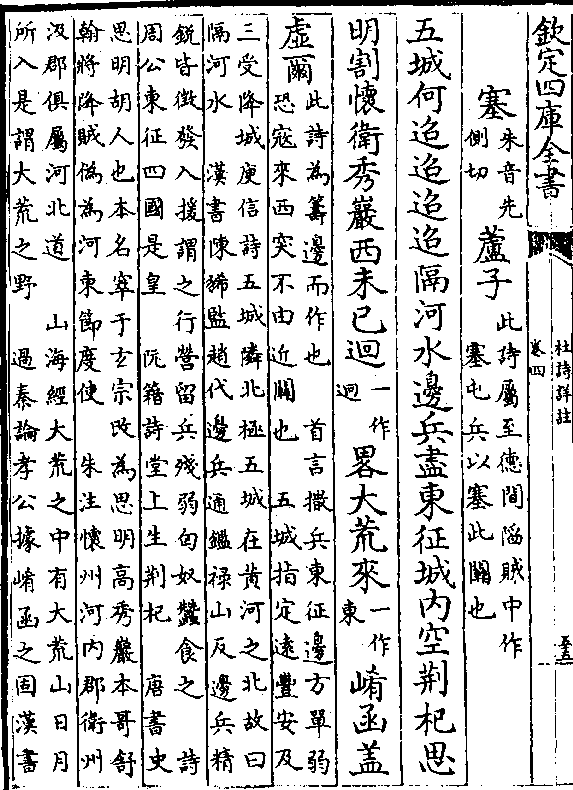 欽定四庫全書
杜詩詳註
卷四
至五
塞朱音先
側切
蘆子此詩屬至德間陷賊中作
塞屯兵以塞此關也
五城何迢迢迢迢隔河水邊兵盡東征城内空荆杞思
明割懷衛秀巖西未已迴一作
迴
畧大荒來一作
東
崤函蓋
虛爾此詩為籌邊而作也 首言撤兵東征邊方單弱
恐寇來西突不由近關也 五城指定遠豐安及
三受降城庾信詩五城隣北極五城在黄河之北故曰
隔河水 漢書陳豨監趙代邊兵通鑑禄山反邊兵精
鋭皆徵發入援謂之行營留兵殘弱匈奴蠶食之 詩
周公東征四國是皇 阮籍詩堂上生荆杞 唐書史
思明胡人也本名窣于玄宗改為思明高秀巖本哥舒
翰將降賊偽為河東節度使 朱注懷州河内郡衛州
汲郡俱屬河北道 山海經大荒之中有大荒山日月
所入是謂大荒之野 過秦論孝公據崤函之固漢書